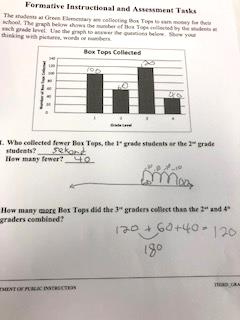 Formative Instructional and Assessment Tasks
The students at Green Elementary are collecting Box Tops to earn money for their
school. The graph below shows the number of Box Tops collected by the students at
each grade level. Use the graph to answer the questions below. Show your
thinking with pictures, words or numbers.
Box Tops Collected
Number of Box Tops Collected
140
120
100
80
60
40
20
0
100
60
120
40
1 2 3 4
Grade Level
1. Who collected fewer Box Tops, the 1st grade students or the 2nd grade
students? Sekond
How many fewer? 40
How many more Box Tops did the 3rd graders collect than the 2nd and 4th
graders combined?
120 + 60+40= 120
180
TMENT OF PUBLIC INSTRUCTION
THIRD GRA